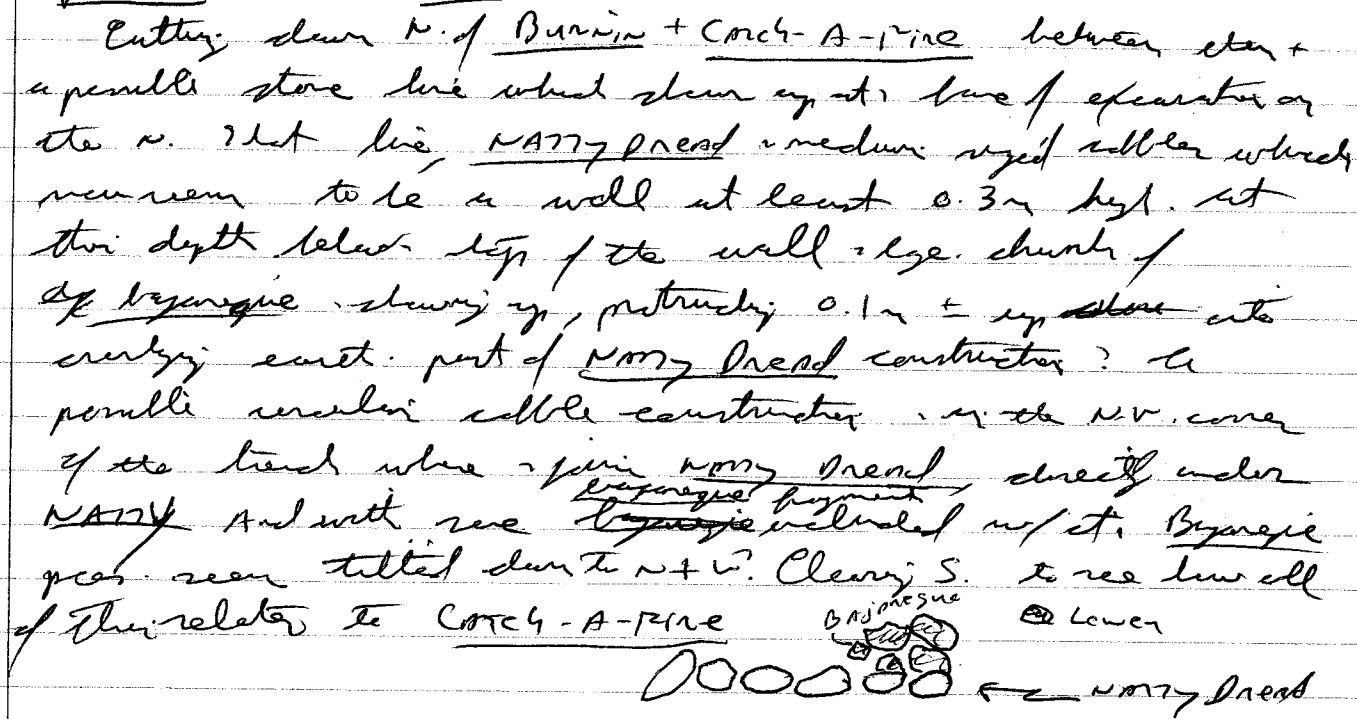 Cutting down N. of Burnin + Catch-A-Fire between them +
a possible stone line which shows up at base of excavation on
the N. That line, NATTY DREAD is medium sized cobbles which
now seem to be a wall at least 0.3m high. At
this depth below top of the wall lge. chunks of
bajareque showing up, protruding 0.1m ± up into
overlying earth. part of NATTY DREAD construction? A
possible circular cobble construction is in the N.W. corner
of the trench where joins NATTY DREAD, directly under
NATTY And with some bajareque fragments included w/ it. Bajareque
pieces seem tilted down to N + W. Clearing S. to see how all
of this relates to CATCH-A-FIRE
BAJAREQUE
Lower
NATTY DREAD